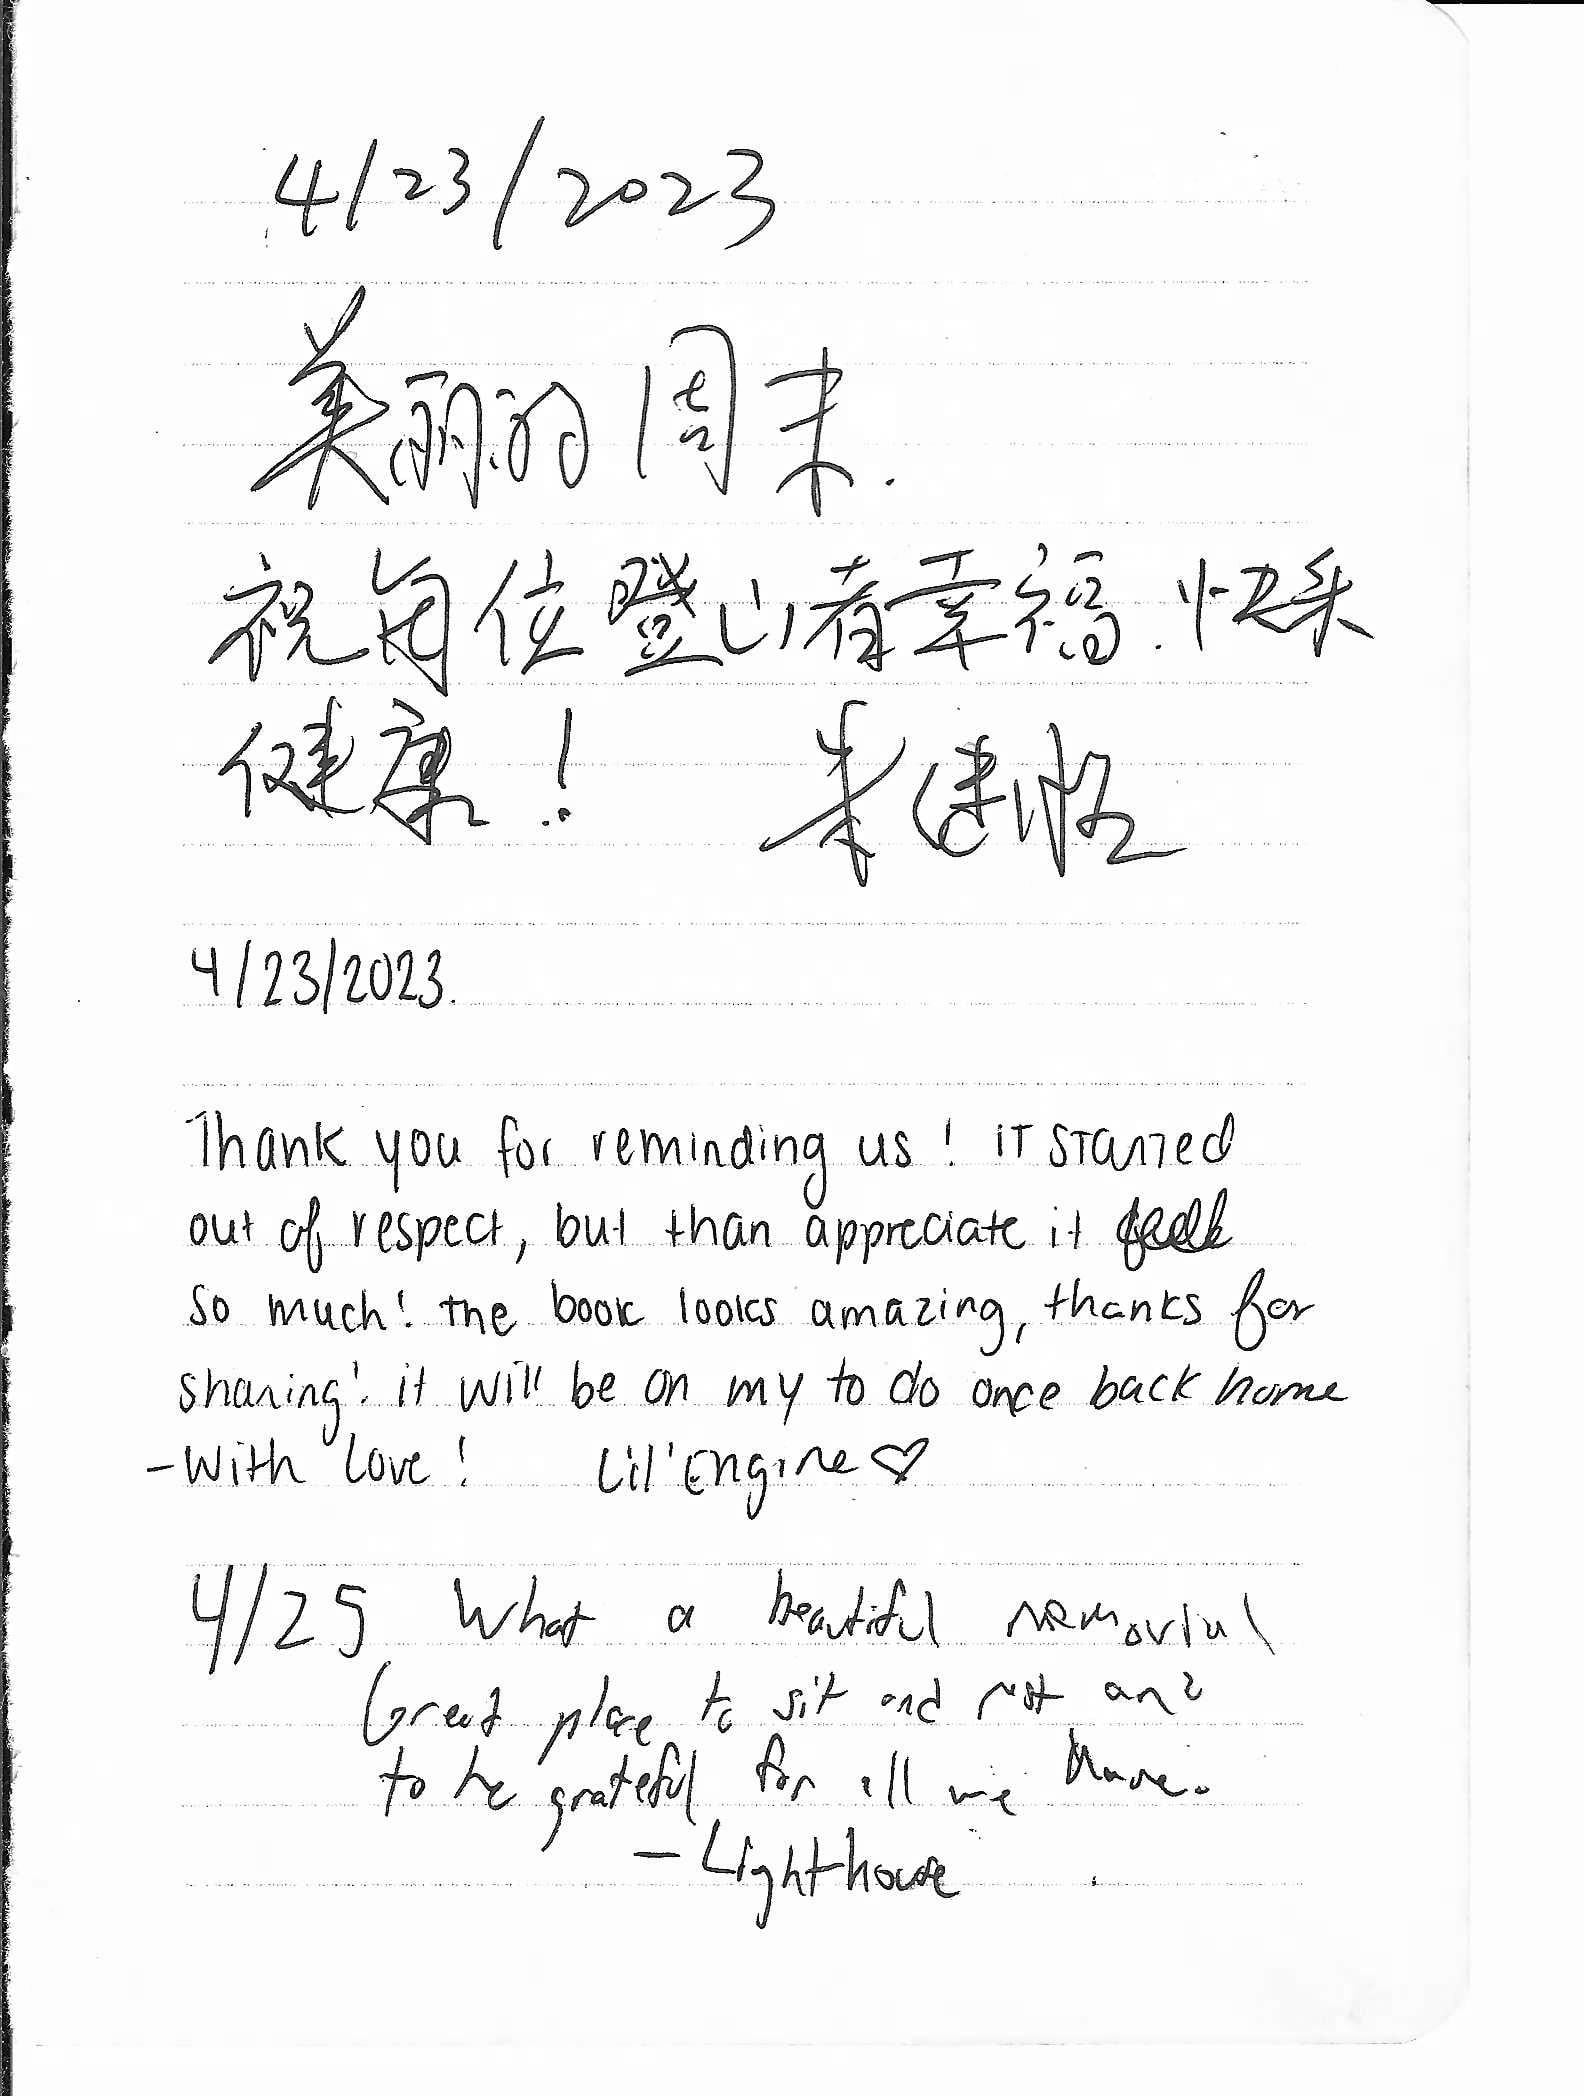 4/23/2023
美丽的周末.
祝每位登山者幸福.快乐
健康!   朱建
4/23/2023.
Thank you for reminding us! it started
out of respect, but than appreciate it
so much! the book looks amazing, thanks for
sharing! it will be on my to do once back home
-With Love!   Lil' Engine ♡
4/25 What a beautiful memorial
Great place to sit and rest and
to be grateful for all we have.
- Lighthouse